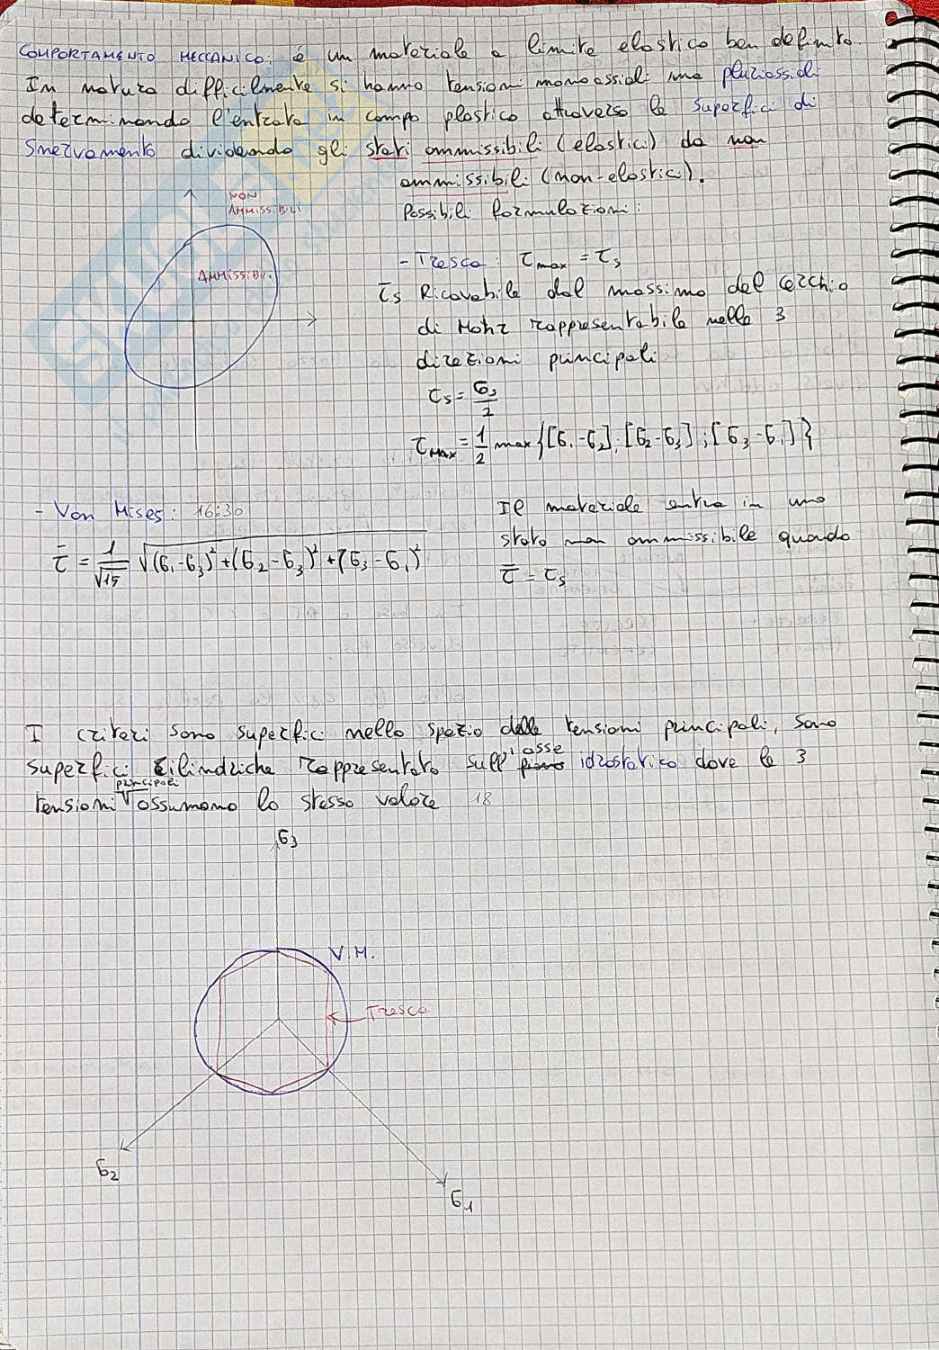 COMPORTAMENTO MECCANICO: è un materiale a limite elastico ben definito.
In natura difficilmente si hanno tensioni monoassiali ma pluriassiali
determinando l'entrata in campo plastico attraverso le superfici di
snervamento dividendo gli stati ammissibili (elastici) da non
ammissibili (non-elastici).
NON
AMMISSIBILI
AMMISSIBILI
Possibili formulazioni:
- Tresca: τmax = τs
τs Ricavabile dal massimo del cerchio
di Mohr rappresentabile nelle 3
direzioni principali
τs = σs/2
τMAX = 1/2 max{[σ1-σ2]; [σ2-σ3]; [σ3-σ1]}
- Von Mises: 16:30
τ̄ = 1/√15 √(σ1-σ3)²+(σ2-σ3)²+(σ3-σ1)²
Il materiale entra in uno
stato non ammissibile quando
τ̄ = τs
I criteri sono superfici nello spazio delle tensioni principali, sono
superfici cilindriche rappresentate sull'asse idrostatico dove le 3
tensioni principali assumono lo stesso valore 18
σ3
V.M.
Tresca
σ2
σ1